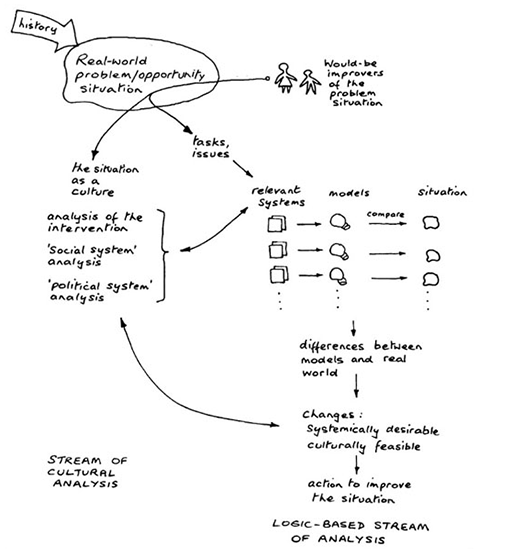 history
Real-world
problem/opportunity
situation
Would-be
improvers
of the
problem
situation
tasks,
issues
the situation
as a
culture
relevant
systems
models
situation
compare
analysis of the
intervention
'Social system'
analysis
'political system'
analysis
differences between
models and real
world
Changes:
systemically desirable
culturally feasible
action to improve
the situation
STREAM OF
CULTURAL
ANALYSIS
LOGIC-BASED STREAM
OF ANALYSIS